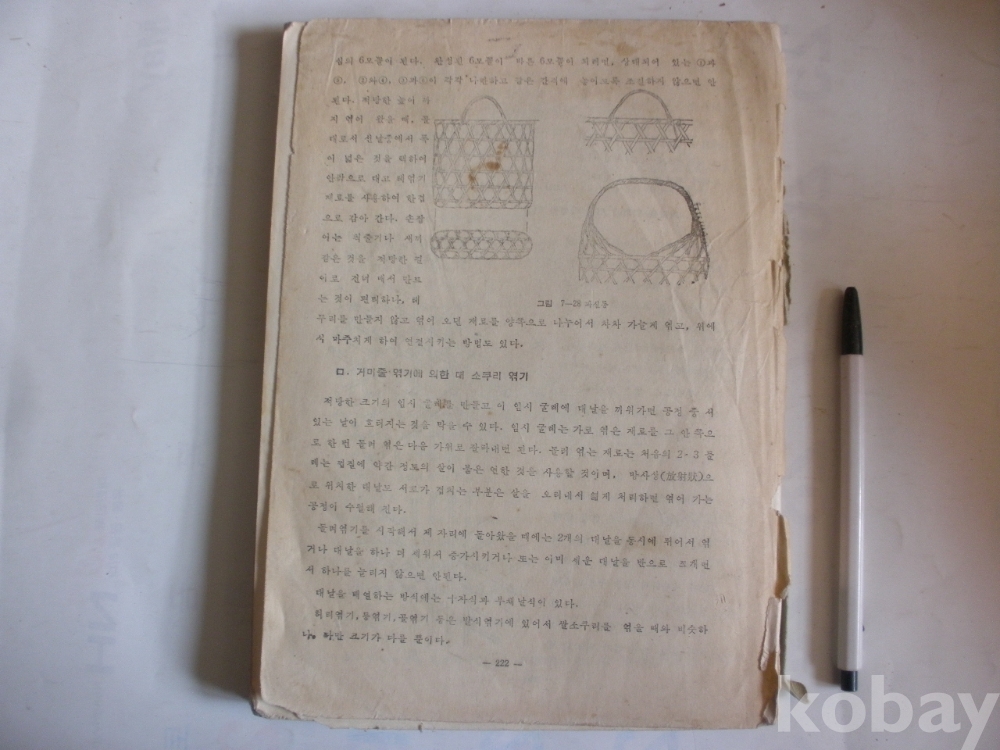 실의 6모줄이 된다. 완성된 6모줄이 다른 6모줄이 되려면, 상대되여 있는 ①과
②, ③와④, ⑤과⑥이 각각 나란하고 같은 간격에 놓이도록 조절하지 않으면 안
된다. 적당한 높이 까
지 엮이 왔을 때, 틀
재로써 선날중에서 폭
이 넓은 것을 택하여
안팎으로 대고 테엮기
재료를 사용하여 한겹
으로 감아 간다. 손잡
이는 식줄기나 새끼
같은 것을 적당한 길
이고 건너 매서 만드
는 것이 편리하다. 테
그림 7—28 과실롱
두리를 만들지 않고 엮어 오던 재료를 양쪽으로 나누어서 차차 가늘게 엮고, 위에
서 마주치게 하여 연결시키는 방법도 있다.
ㅁ. 거미줄 엮기에 의한 대 소쿠리 엮기
적당한 크기의 임시 굴레를 만들고 이 임시 굴레에 대날을 띄워가면 공정 중 서
있는 날이 흐러지는 것을 막을 수 있다. 임시 굴레는 가로 엮은 재료를 그 안쪽으
로 한 번 돌려 엮은 다음 가위로 잘라내면 된다. 돌려 엮는 재료는 처음의 2~3 돌
레는 겁질에 약간 정도의 살이 붙은 연한 것을 사용할 것이며, 방사상(放射狀)으
로 위치한 대날도 서로가 겹치는 부분은 살을 오려내서 엷게 처리하면 엮어 가는
공정이 수월해 진다.
돌려엮기를 시작해서 제 자리에 돌아왔을 때에는 2개의 대날을 동시에 뛰어서 엮
거나 대날을 하나 더 세워서 증가시키거나 또는 이미 세운 대날을 반으로 쪼개면
서 하나를 늘리지 않으면 안된다.
대날을 배열하는 방식에는 十자식과 부채날식이 있다.
허리엮기, 통엮기, 끝엮기 등은 발식엮기에 있어서 쌀소쿠리를 엮을 때와 비슷하
나, 다만 크기가 다를 뿐이다.
— 222 —
kobay